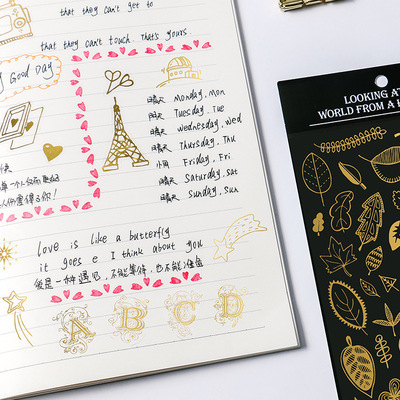 that they can't get to
that they can't touch. That's yours
Good Day
晴天 Monday, Mon
阴天 Tuesday, Tue
晴天 Wednesday, Wed
晴天 Thursday, Thu
小雨 Friday, Fri
晴天 Saturday, sat
晴天 Sunday, Sun
love is like a butterfly
it goes e I think about you
爱是一种遇见，不能等待，也不能准备
A B C D
LOOKING AT
WORLD FROM A